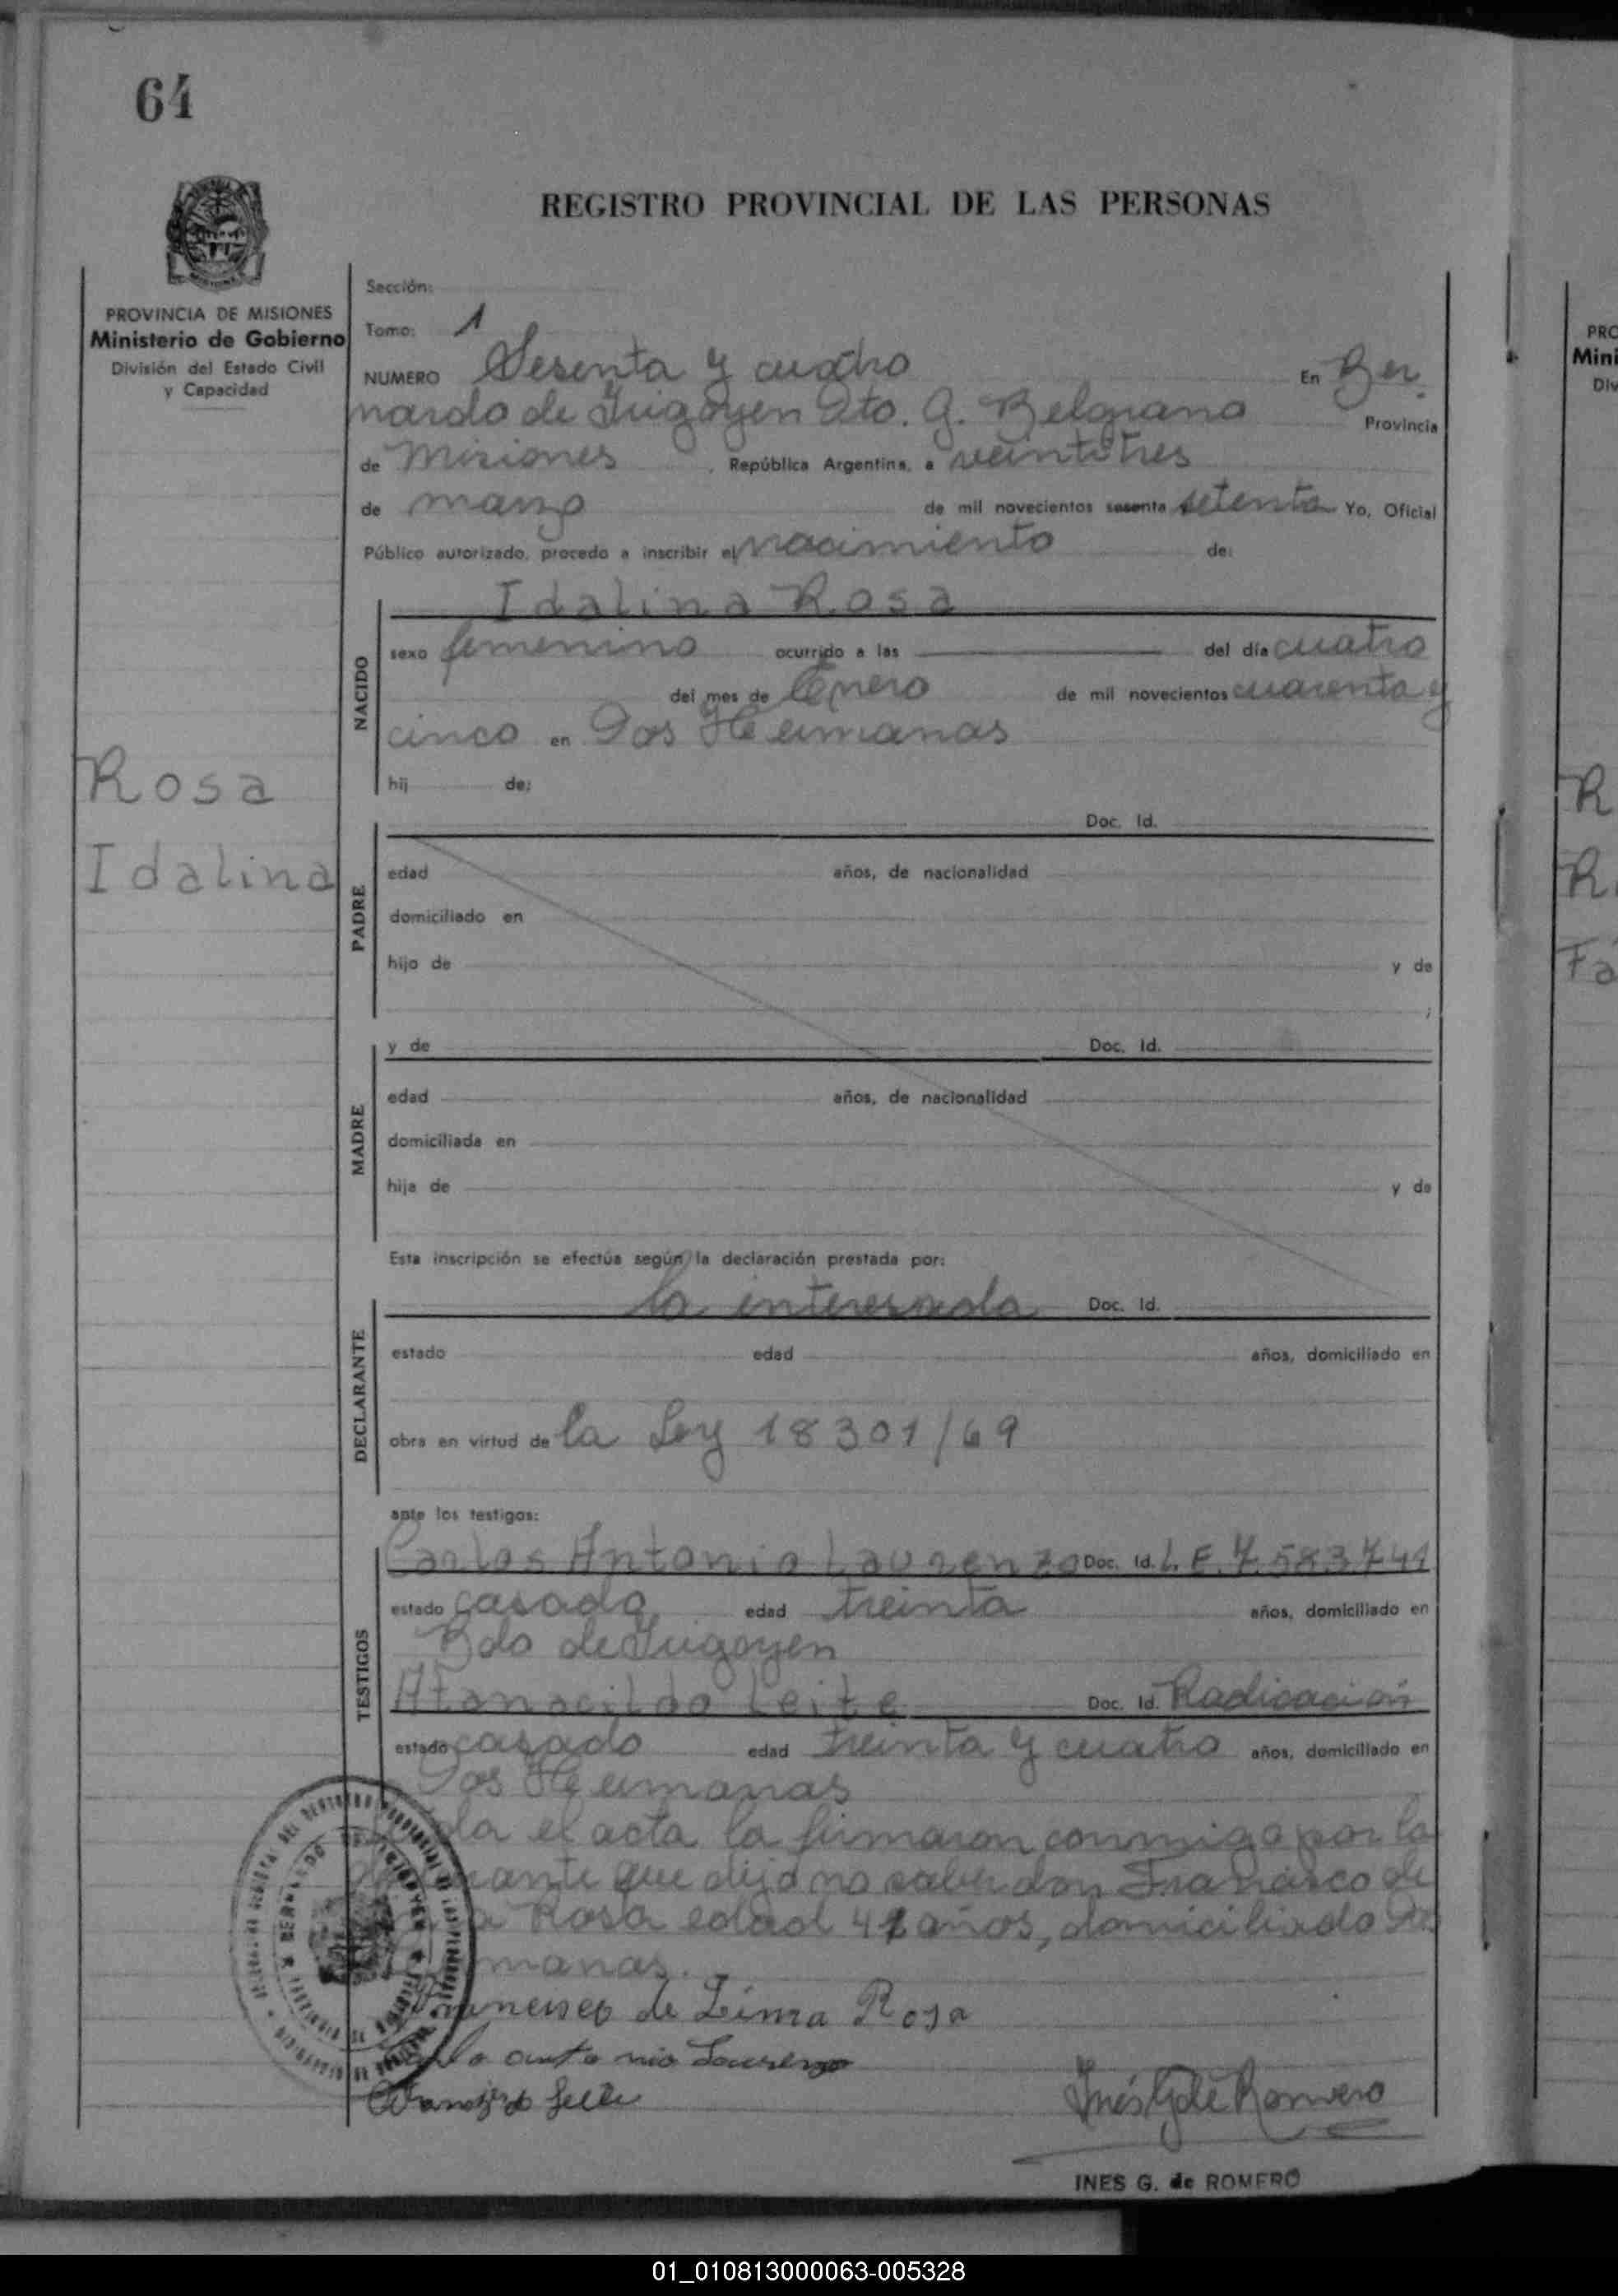 64
REGISTRO PROVINCIAL DE LAS PERSONAS
PROVINCIA DE MISIONES
Ministerio de Gobierno
División del Estado Civil
y Capacidad
Sección:
Tomo: 1
NUMERO Sesenta y cuatro En Ber
nardo de Irigoyen Dto. G. Belgrano Provincia
de Misiones, República Argentina, a veintitres
de marzo de mil novecientos sesenta setenta Yo, Oficial
Público autorizado, procedo a inscribir el nacimiento de:
Idalina Rosa
NACIDO
sexo femenino ocurrido a las del día cuatro
del mes de Enero de mil novecientos cuarenta y
cinco en Dos Hermanas
hij de:
Rosa
Idalina
PADRE
Doc. Id.
edad años, de nacionalidad
domiciliado en
hijo de y de
;
MADRE
y de Doc. Id.
edad años, de nacionalidad
domiciliada en
hija de y de
Esta inscripción se efectúa según la declaración prestada por:
DECLARANTE
la interesada Doc. Id.
estado edad años, domiciliado en
obra en virtud de la Ley 18301/69
ante los testigos:
TESTIGOS
Carlos Antonio Laurenzo Doc. Id. L.E. 7.583.741
estado casado edad treinta años, domiciliado en
Bdo de Irigoyen
Atanacildo Leite Doc. Id. Radicación
estado casado edad treinta y cuatro años, domiciliado en
Dos Hermanas
el acta la firmaron conmigo por la
que dijo no saber don Francisco de
Rosa edad 41 años, domiciliado Dos
manas.
Francisco de Lima Rosa
antonio
Inés G de Romero
INES G. de ROMERO
PRO
Mini
Div
R
R
Fa
01_010813000063-005328